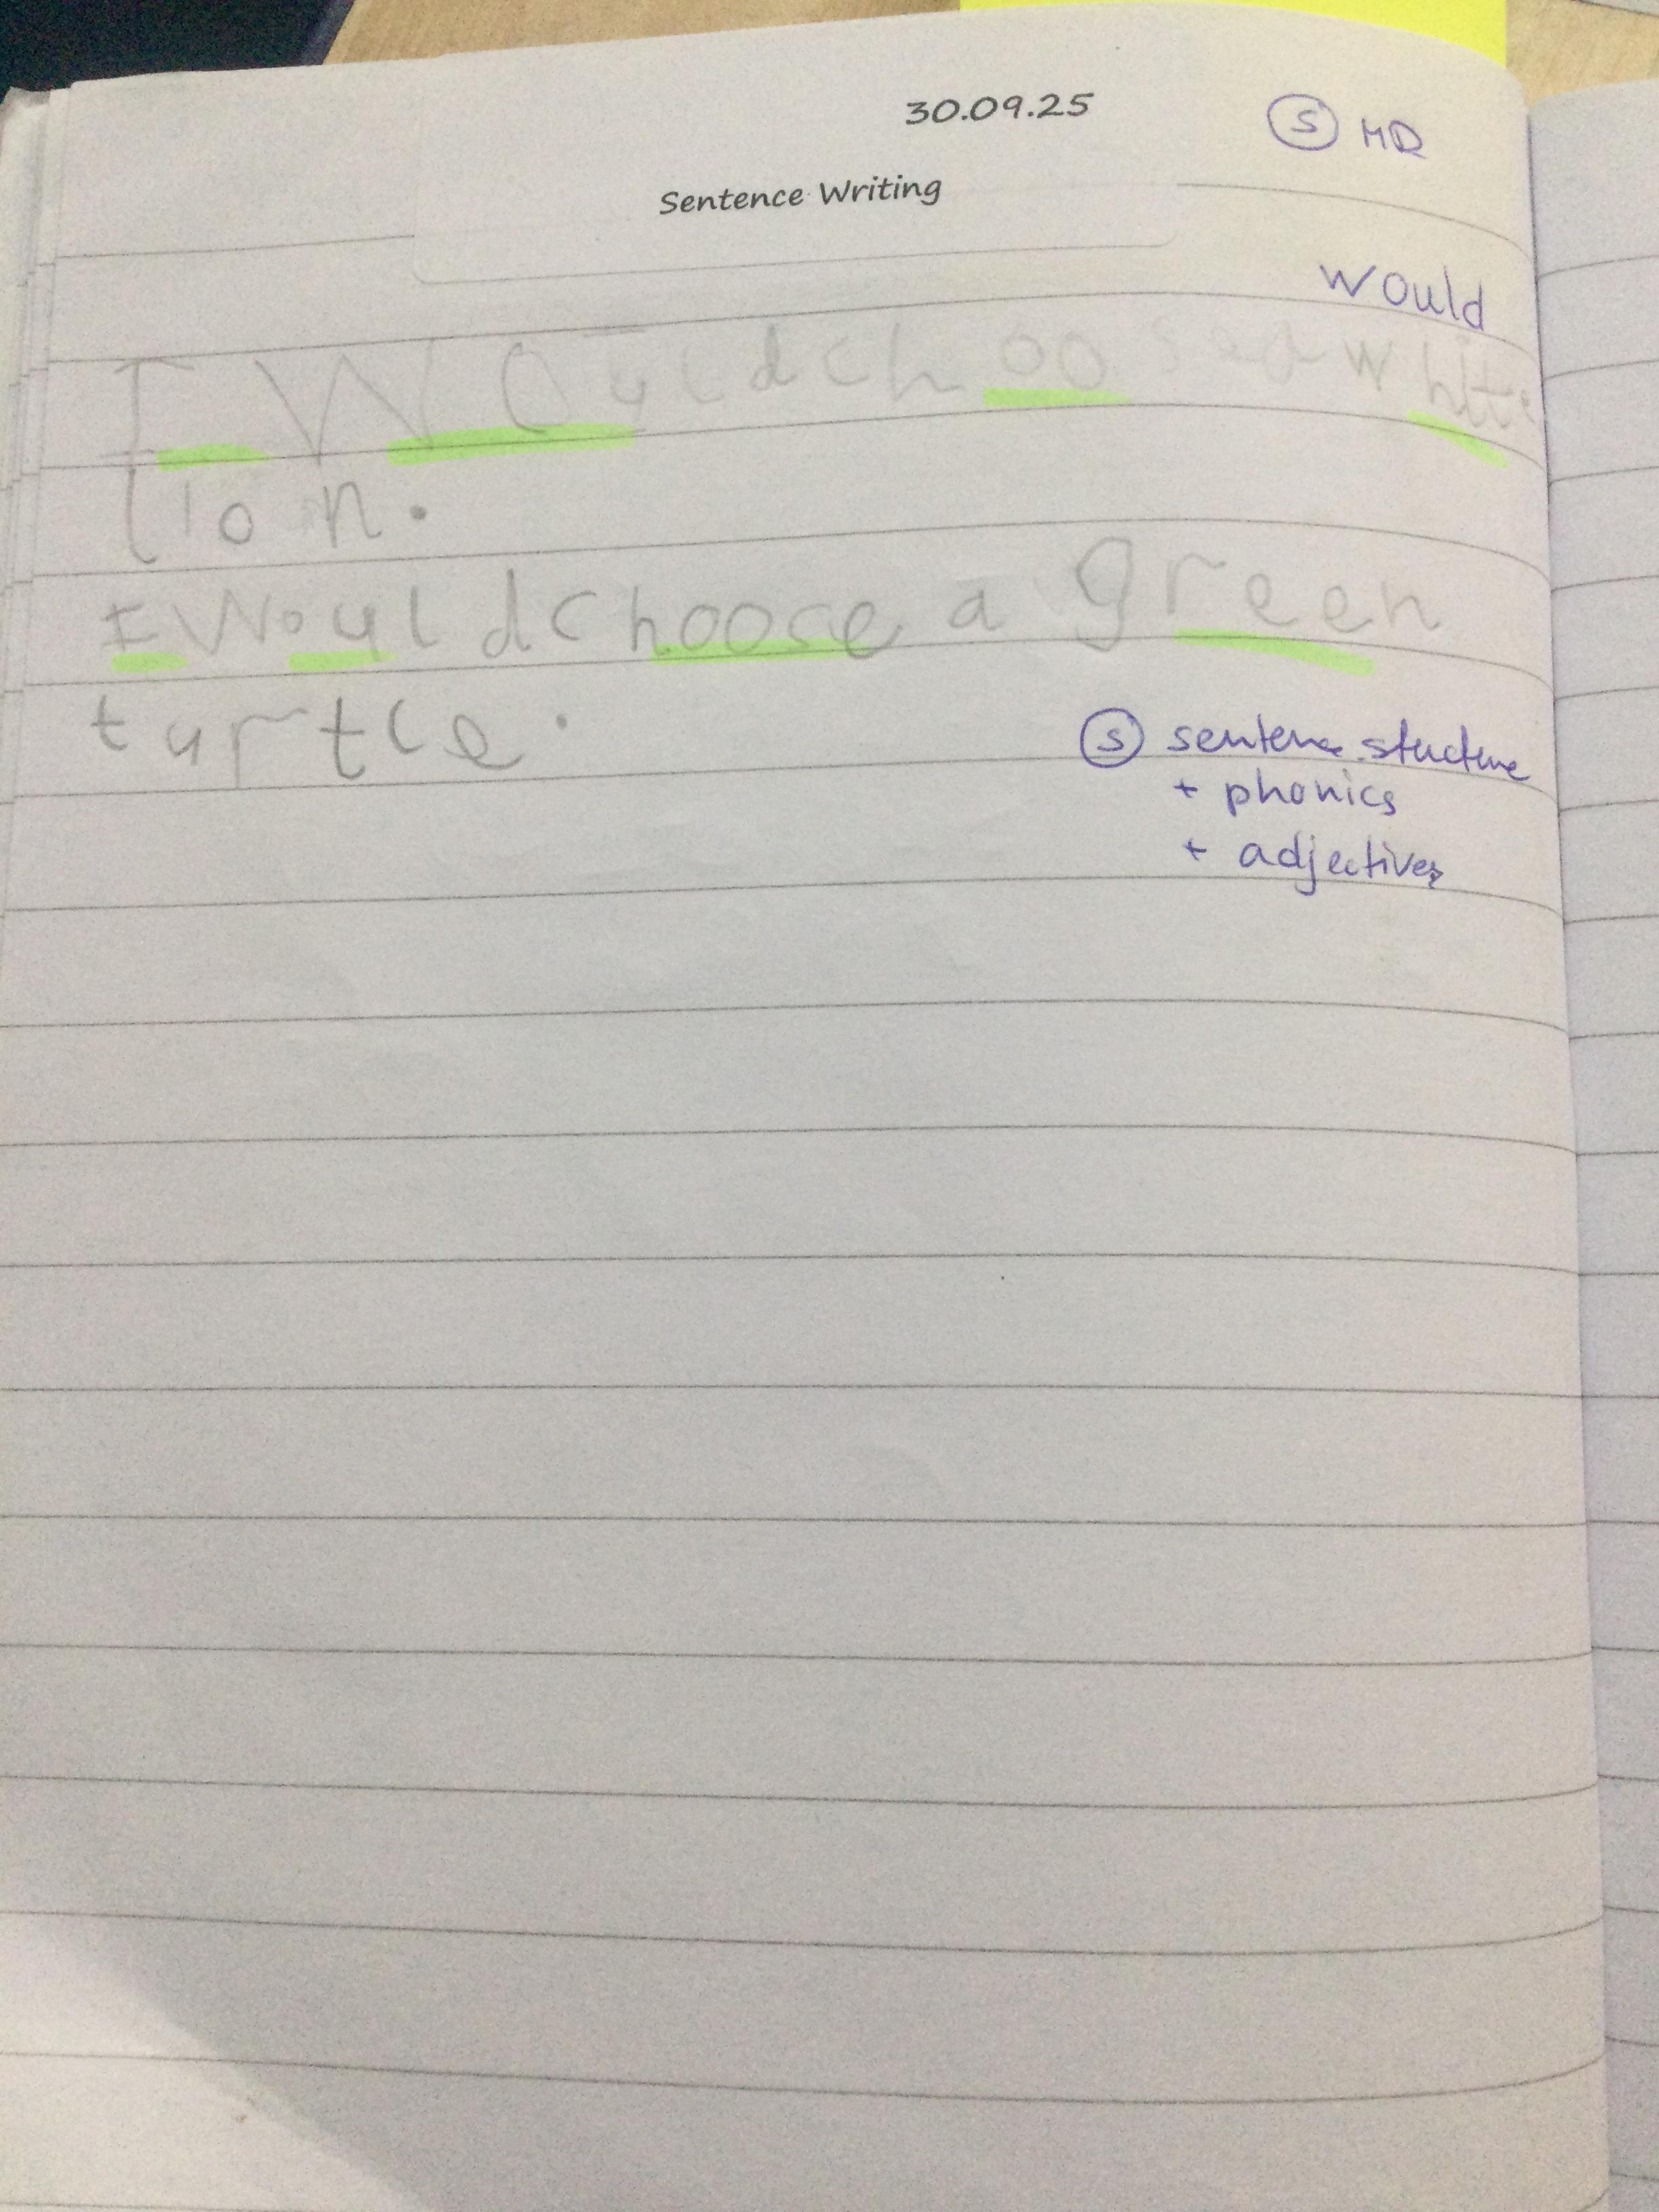 30.09.25
Ⓢ MD
Sentence Writing
would
I Would choose a white
lion.
I Would choose a green
turtle.
Ⓢ sentence structure
+ phonics
+ adjectives